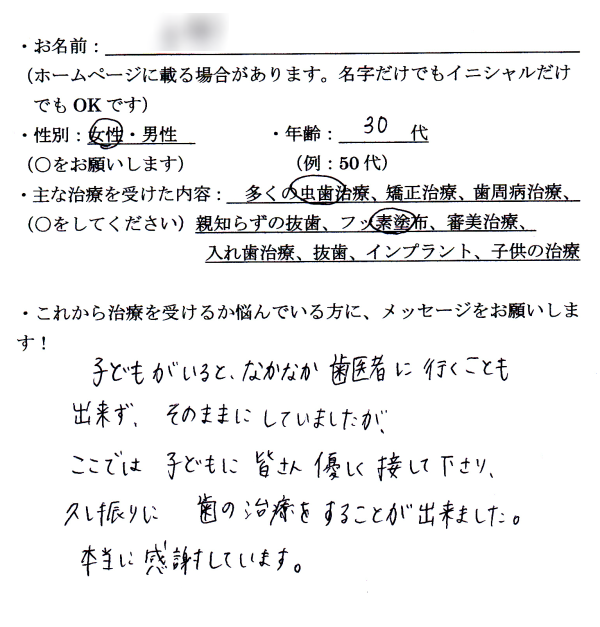 ・お名前：
（ホームページに載る場合があります。名字だけでもイニシャルだけ
でもOKです）
・性別：女性・男性　・年齢： 30 代
（○をお願いします）　（例：50代）
・主な治療を受けた内容： 多くの虫歯治療、矯正治療、歯周病治療、
（○をしてください）親知らずの抜歯、フッ素塗布、審美治療、
入れ歯治療、抜歯、インプラント、子供の治療
・これから治療を受けるか悩んでいる方に、メッセージをお願いしま
す！
子どもがいると、なかなか歯医者に行くことも
出来ず、そのままにしていましたが、
ここでは子どもに皆さん優しく接して下さり、
久し振りに歯の治療をすることが出来ました。
本当に感謝しています。